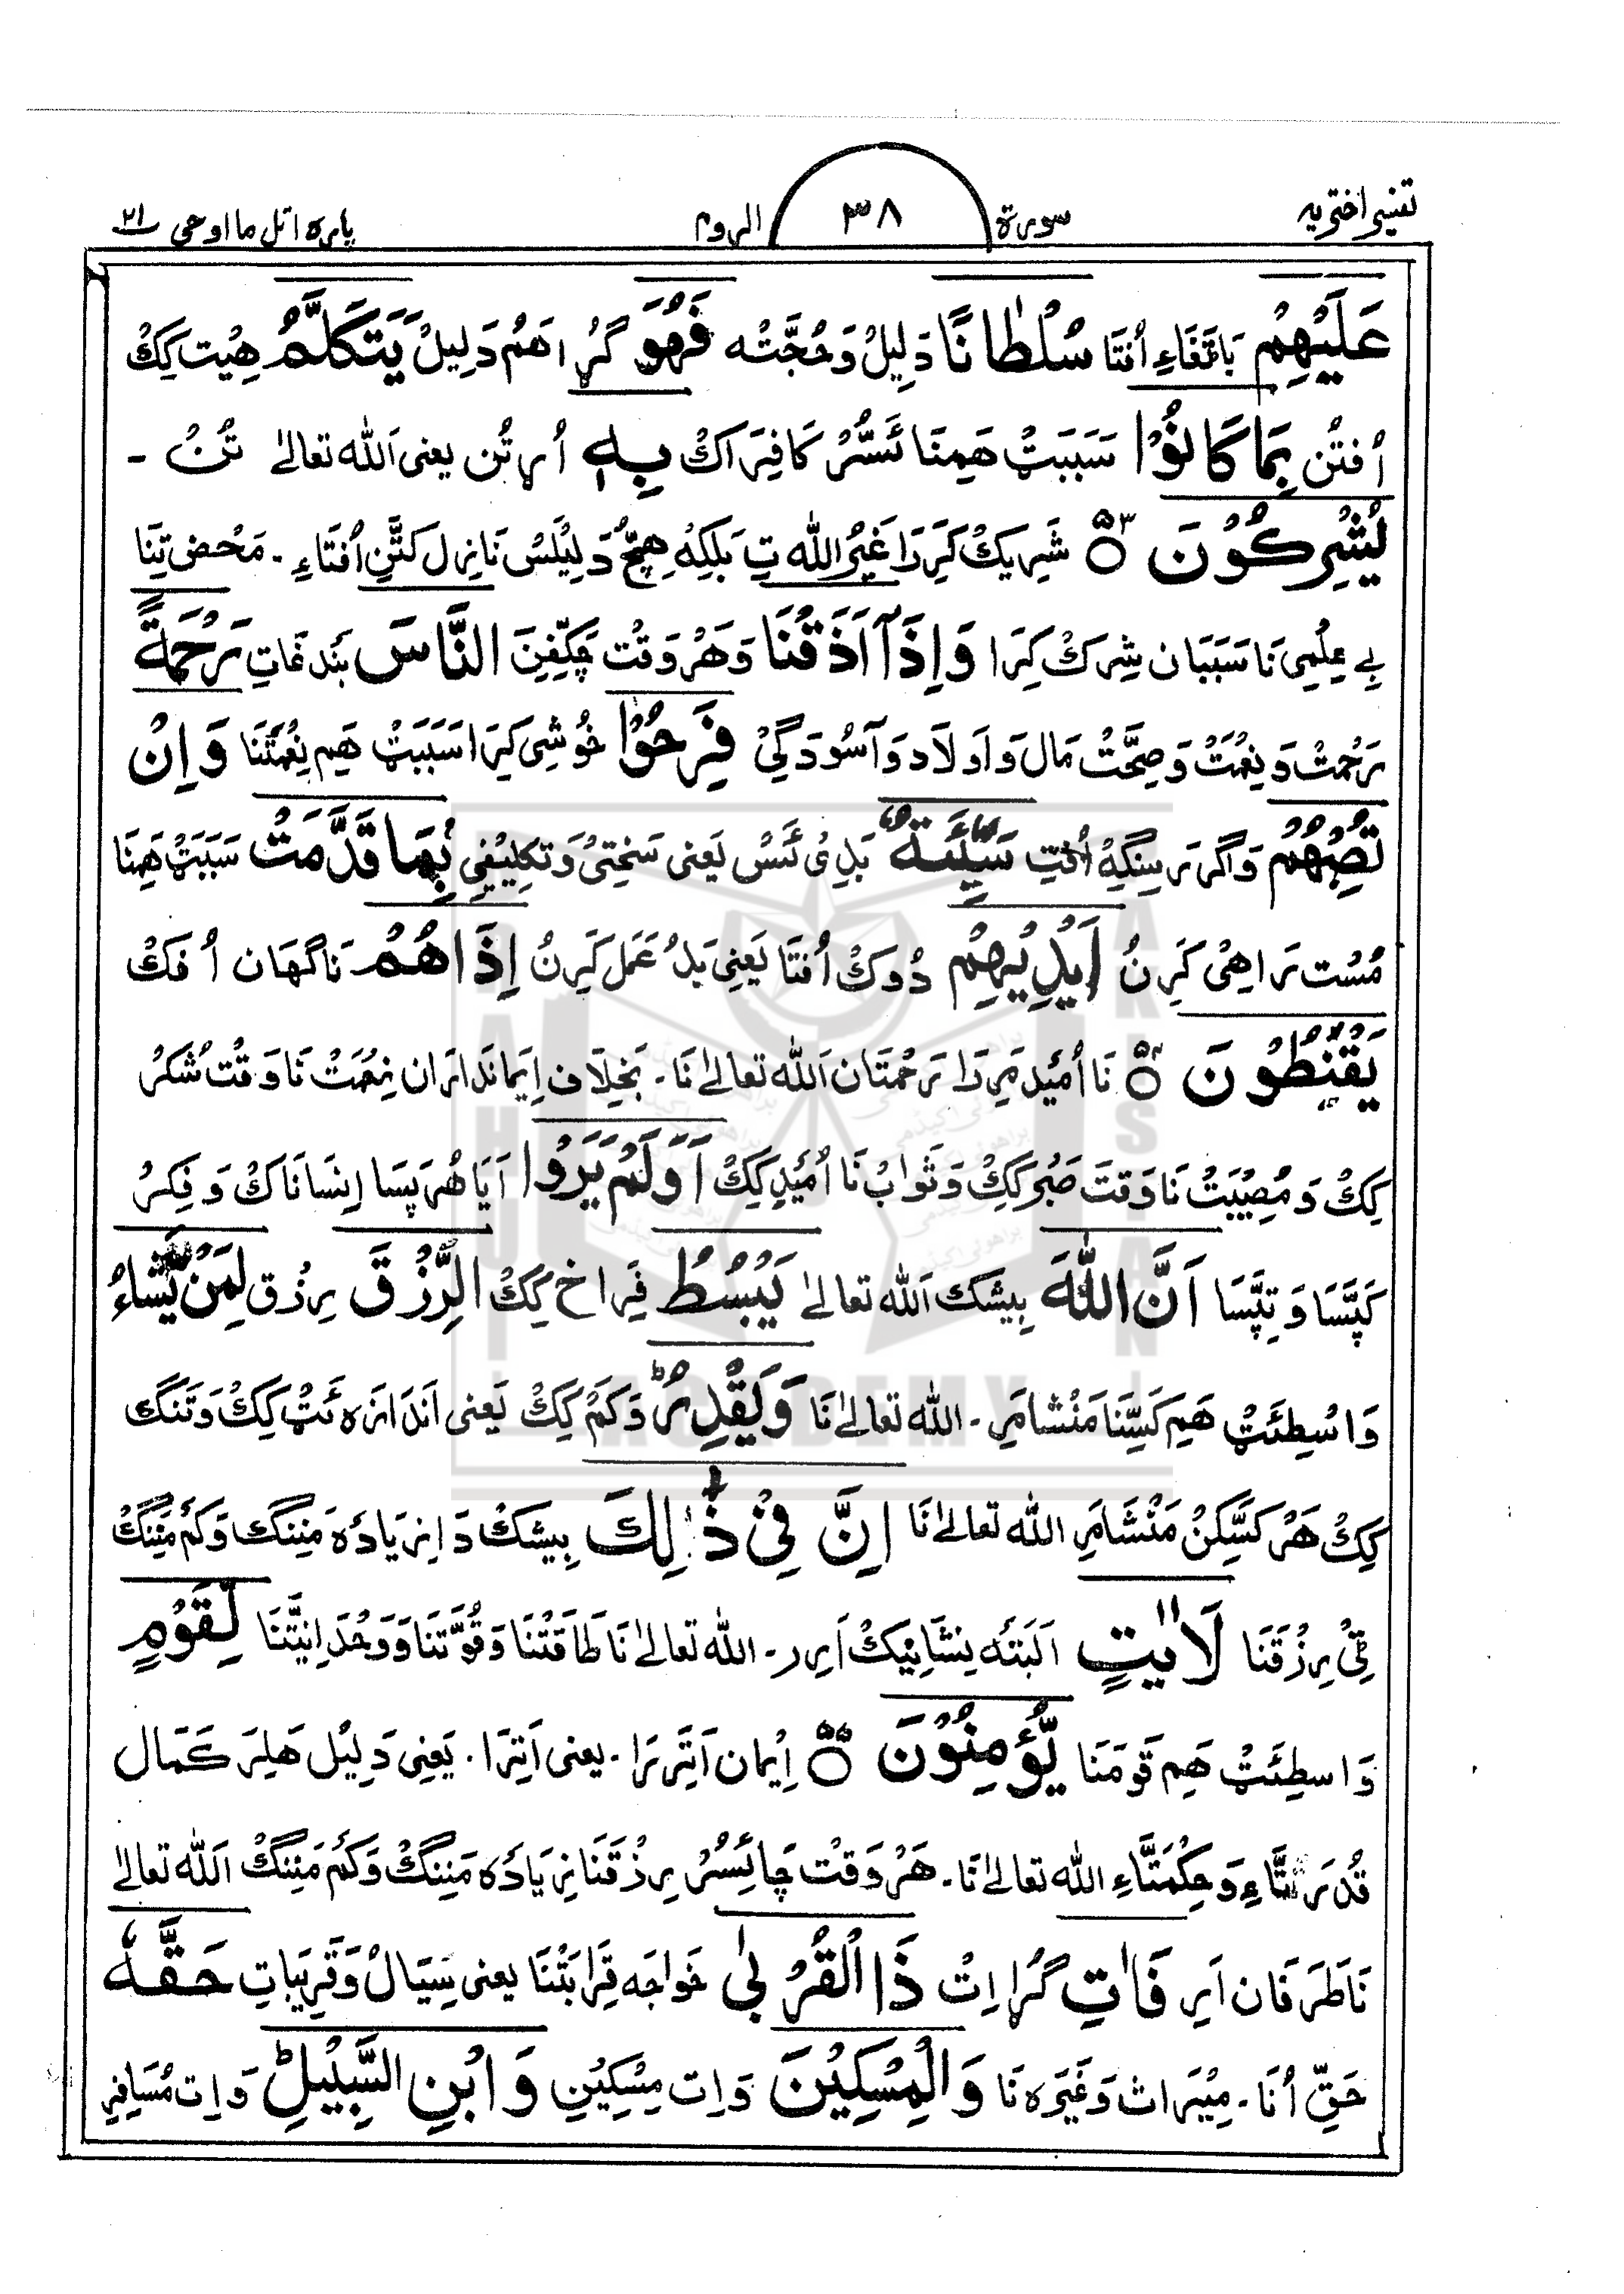 تفسیر اختریہ سورۃ ۳۸ الروم پارہ اتل ما اوحی ۲۱
عَلَيْهِمْ بَاتَغَاءِ اُفتَا سُلْطَانًا دَلِيلُ وَحُجَّتْہ فَهُوَ گُڑا هَمُ دَلِيلْ يَتَكَلَّمُ هِيْت كِكْ
اُفتُن بِمَا كَانُوْا سَبَبَتْ هَمِنَا ئَسُّرْ كَافِرَاكْ بِهٖ اُرتُن یعنی اَللہ تعالیٰ تُنْ -
يُشْرِكُوْنَ ۳۵ شَرِيكْ كَرِرَا غَيْرُ اللہ تِ بَلكِهُ هِچُّ دَلِيْلَسْ نَازِل كَتَّنِ اُفتَاءِ ۔ مَحْض تِنَا
بِے عِلْمِی نَا سَبَبَان شِرك كِرَا وَاِذَآ اَذَقْنَا وَهَرُوَقْت چَکِّفِنَ النَّاسَ بَندَغَاتِ رَحْمَةً
رَحْمَتْ وَ نِعْمَتْ وَصِحَّتْ مَال وَاَولَاد وَ آسُودَگِیْ فَرِحُوْا خُوشِی كِرَا سَبَبَتْ هَمِ نِعْمَتَنَا وَاِنْ
تُصِبْهُمْ وَاگر رَسِنگِهُ اُفتِ سَيِّئَةٌۢ بَدِی ئَسْ یَعنی سَختِیُ وَتکلِیْفِی بِمَا قَدَّمَتْ سَبَبَتْ هَمِنَا
مُسْت رَاهِیْ كَرِنُ اَيْدِيْهِمْ دُوكْ اُفتَا یَعنِی بَدُ عَمَل كَرِنُ اِذَا هُمْ نَاگهَان اُفكْ
يَقْنَطُوْنَ ۳۶ نَا اُمِّيد مَرِرَا رَحْمَتَان اَللہ تعالیٰ نَا ۔ بَخِلَاف اِيمَاندَارَان نِعْمَتْ نَا وَقْت شُكر
كِكْ وَ مُصِيْبَتْ نَا وَقتَ صَبْر كِكْ وَثَوابْ نَا اُمِّيد كِكْ اَوَلَمْ يَرَوْا اَيَا هُرَپَسَا اِنسَانَاكْ وَ فِكرْ
كَپَّسَا وَ تِپَّسَا اَنَّ اللّٰهَ بِيشك اَللہ تعالیٰ يَبْسُطُ فِرَاخ كِكْ الرِّزْقَ رِزْق لِمَنْ يَّشَآءُ
وَاسْطِئَتْ هَمِ كَسِّنَا مَنْشَا مَرِ ۔ اللہ تعالیٰ نَا وَيَقْدِرُ ؕ وَكَمْ كِكْ یَعنی اَندَازہ ئَتْ كِكْ وَتَنگ
كِكْ هَرْ كَسِّكِنْ مَنْشَا مَرِ اللہ تعالیٰ نَا اِنَّ فِيْ ذٰلِكَ بِيشك دَا زِيَادَہ مَنِنگ وَكَمْ مَنِنگ
ٹِیْ رِزْقَنَا لَاٰيٰتٍ اَلبَتَہ نِشَانِیْكْ اَرِر ۔ اللہ تعالیٰ نَا طَاقَتْنَا وَقُوَّتنَا وَ وَحْدَانِیَّتَنَا لِّقَوْمٍ
وَاسطِئَتْ هَمِ قَومَنَا يُّؤْمِنُوْنَ ۳۷ اِيمَان اَتِرَرَا ۔ یعنی اَتِرَا ۔ یَعنِی دَلِيْل هَلِرَ كَمَال
قُدرَتَّاءِ وَ حِكْمَتَّاءِ اللہ تعالیٰ نَا ۔ هَرْ وَقْت چَائِسُرْ رِزْقَنَا زِيَادَہ مَنِنگ وَكَمْ مَنِنگ اَللہ تعالیٰ
نَا طَرَفَان اَرِ فَاٰتِ گُڑا اِتْ ذَا الْقُرْبٰى خَواجَه قَرَابَتْنَا یعنی سِيَالْ وَقَرِيبَاتِ حَقَّهٗ
حَقِّ اُنَا ۔ مِيْرَاث وَغَيرَه نَا وَالْمِسْكِيْنَ وَاِت مِسْكِيْنِ وَابْنَ السَّبِيْلِ ؕ وَاِت مُسَافِرِ